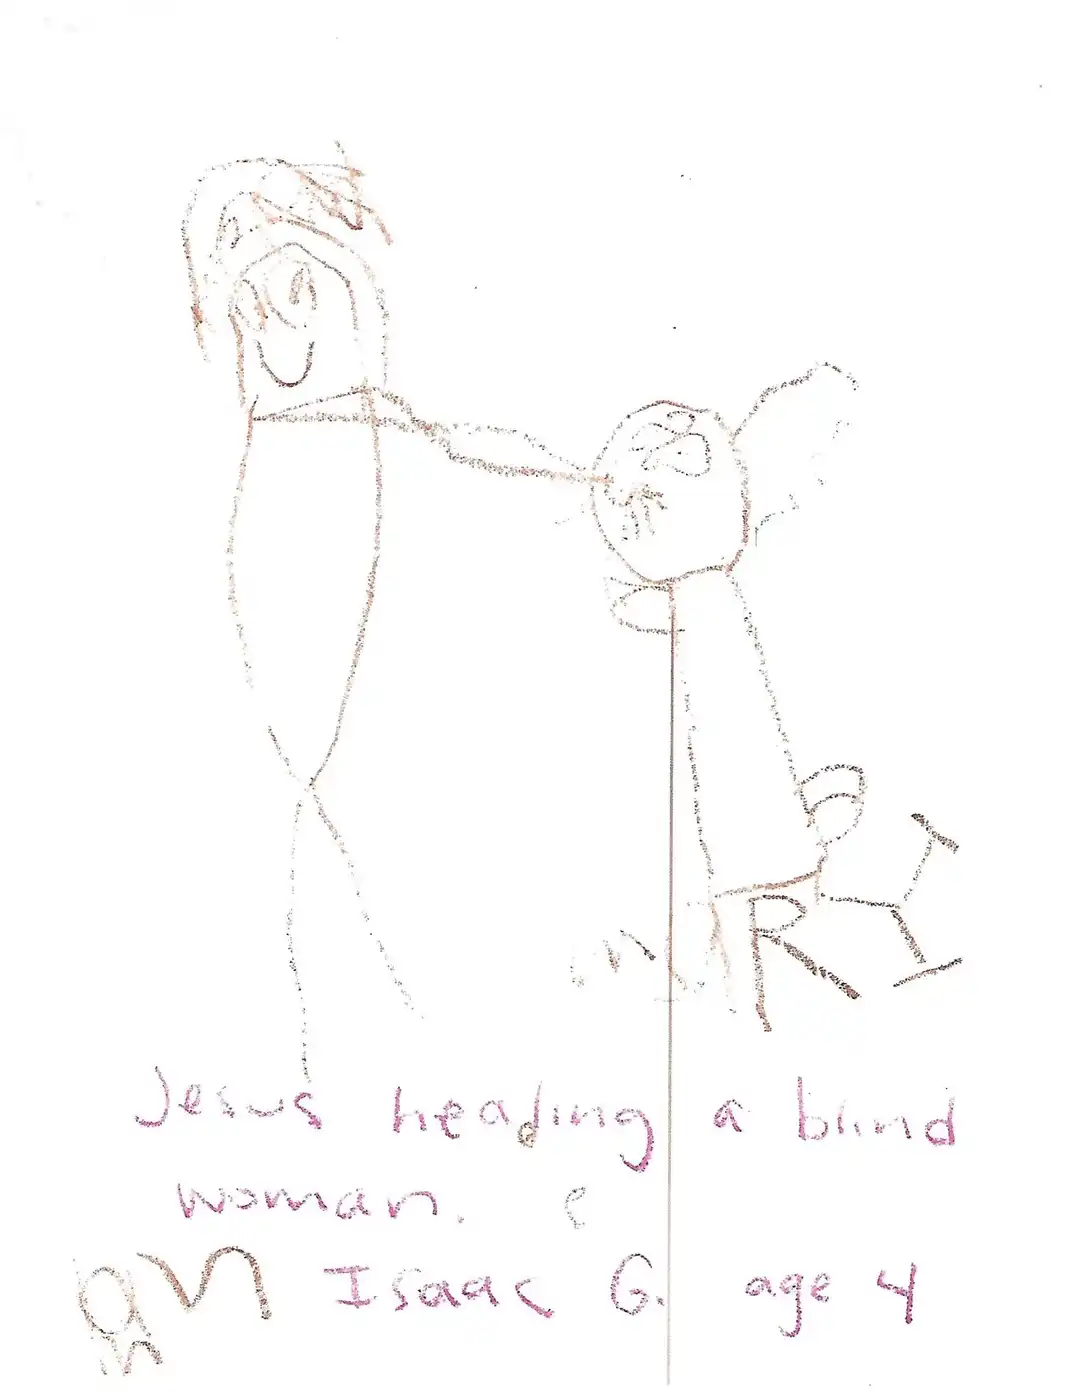 R
Jesus healing a blind
woman.
Isaac G. age 4